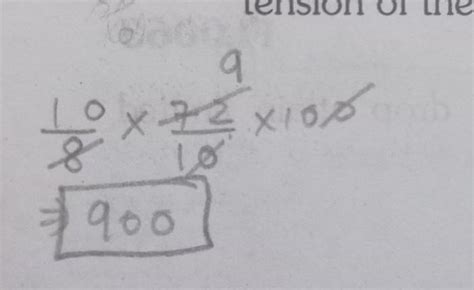 tension of the
9
10/8 × 72/10 × 100
⇒ 900